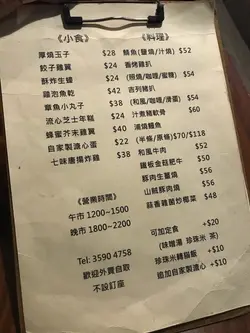 《小食》
厚燒玉子 $28
餃子雞翼 $38
酥炸生蠔 $24
尋泡魚乾 $42
章魚小丸子 $38
流心芝士年糕 $24
蜂蜜芥末雞翼 $40
自家製溏心蛋 $22
七味唐揚炸雞 $38
《料理》
鯖魚(鹽燒/汁燒) $52
香烤豬扒
(照燒/咖喱/蜜糖) $54
吉列豬扒
(和風/咖喱/滑蛋) $54
汁煮豬軟骨 $60
浦燒鰻魚
(半條/原條)$70/$118
和風牛肉 $52
鐵板金菇肥牛 $50
豚肉生薑燒 $50
山賊豚肉燒 $56
蒜香雜菌炒椰菜 $48
《營業時間》
午市 1200~1500
晚市 1800~2200
Tel: 3590 4758
歡迎外賣自取
不設訂座
可加定食 +$20
(味噌湯 珍珠米 茶)
珍珠米轉稲飯 +$10
追加自家製溏心 +$10